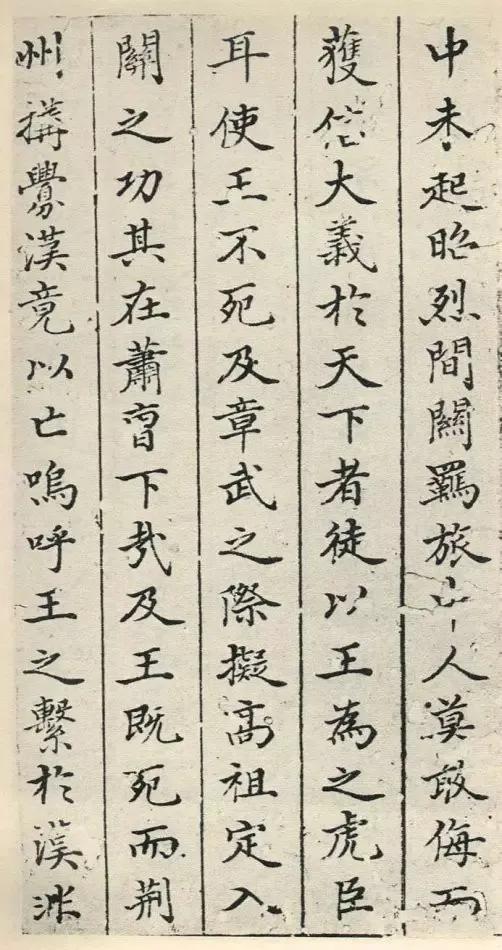 中未起昭烈間關羈旅中人莫敢侮而
獲信大義於天下者徒以王為之虎臣
耳使王不死及章武之際擬高祖定入
關之功其在蕭曹下㢤及王既死而荆
州搆釁漢竟以亡嗚呼王之繫於漢非